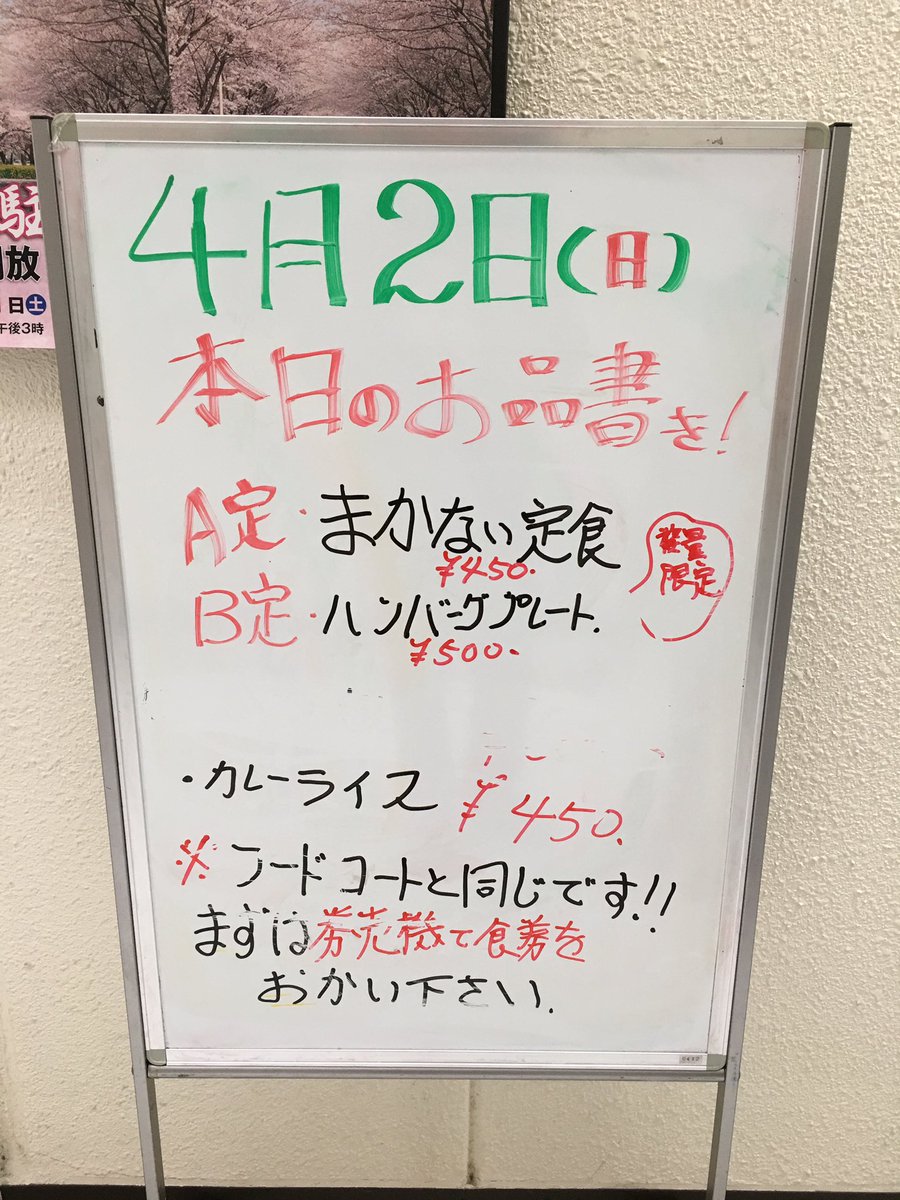 駐
開放
日土
午後3時
4月2日(日)
本日のお品書き!
A定・まかない定食
¥450.
数量
限定
B定・ハンバーグプレート.
¥500.
・カレーライス ¥450.
※フードコートと同じです!!
まずは券売機で食券を
おかい下さい.